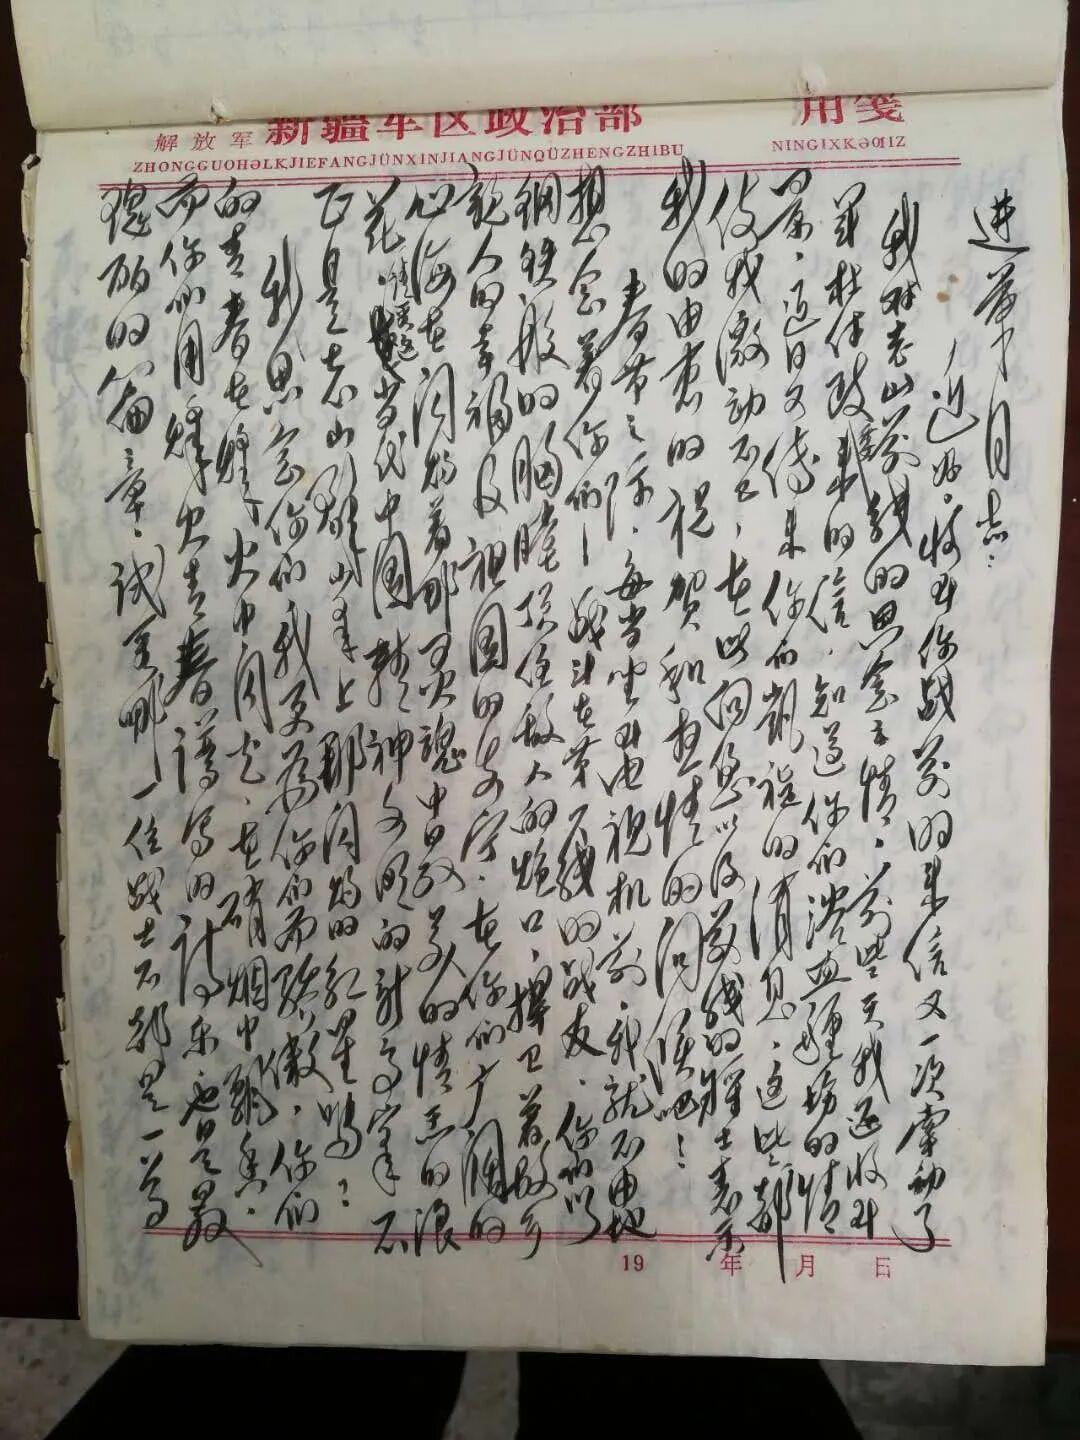 解放军新疆军区政治部 用笺
ZHONGGUOHƏLKJIEFANGJÜNXINJIANGJÜNQÜZHENGZHIBU NINGIXKƏƣIZ
进军同志：
近好。收到你战前的来信又一次牵动了
我对老山前线的思念之情。前些天我还收到
杜佳改来的信，知道你们浴血疆场的情
景，近日又传来你们凯旋的消息，这些都
使我激动不已，在此向您以及前线的将士表示
我的由衷的祝贺和热情的问候吧！
春节之际，每当坐到电视机前，我就不由地
想念着你们—战斗在第一线的战友，你们以
钢铁般的胸膛顶住敌人的炮口，捍卫着故乡
亲人的幸福及祖国的安宁，在你们广阔的
心海在闪灼着那灵魂中最美的情志的浪
花，当代中国精神文明的新高峰不
正是老山群山峰上那闪灼的红星吗？
我思念你们我更为你们而骄傲，你们
的青春在烽火中闪光，在硝烟中飘香，
而你们用烽火青春谱写的诗乐也是最
瑰丽的篇章，试看哪一位战士不都是一首
19 年 月 日